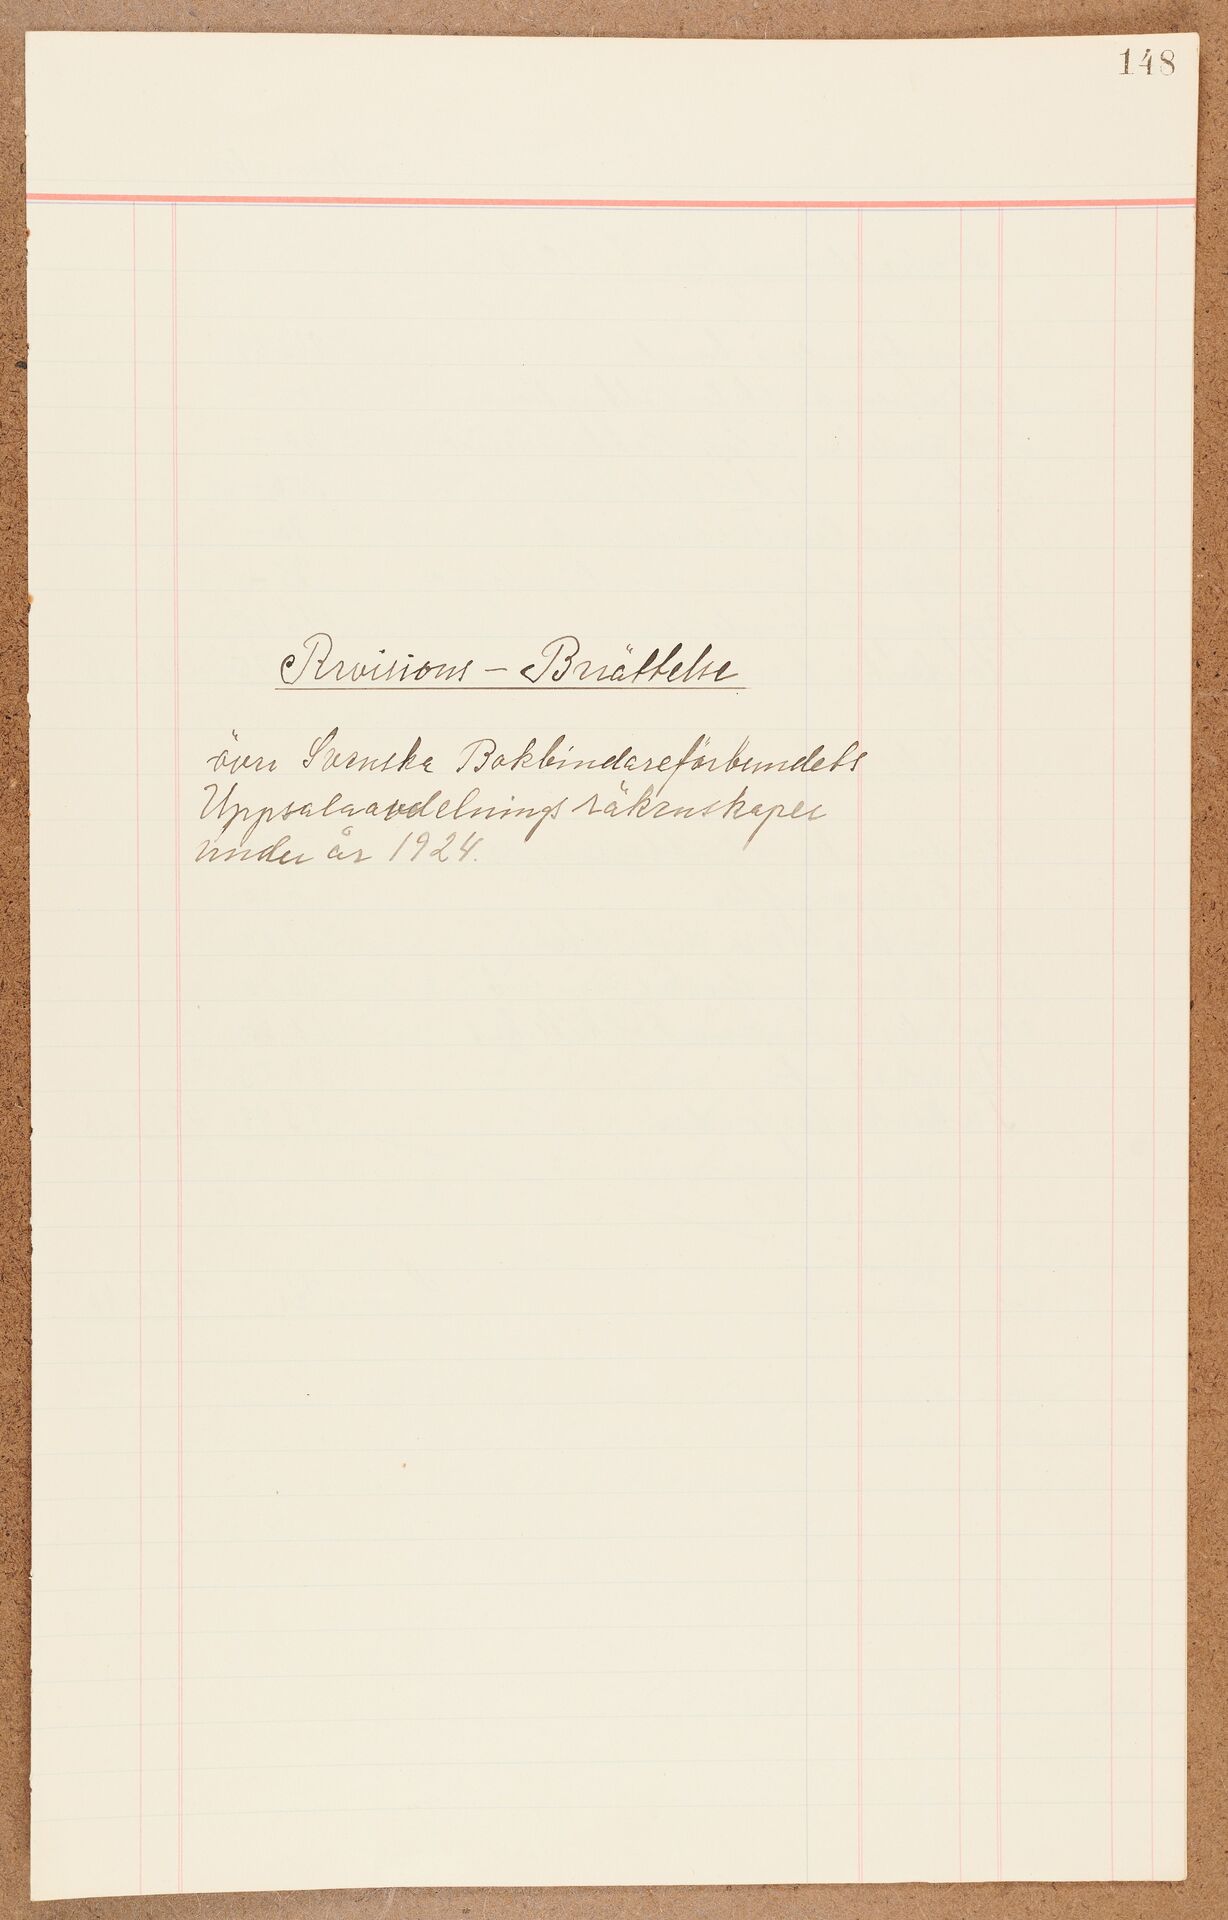 148
Revisions – Berättelse
över Svenska Bokbindareförbundets
Uppsalaavdelnings räkenskaper
under år 1924.